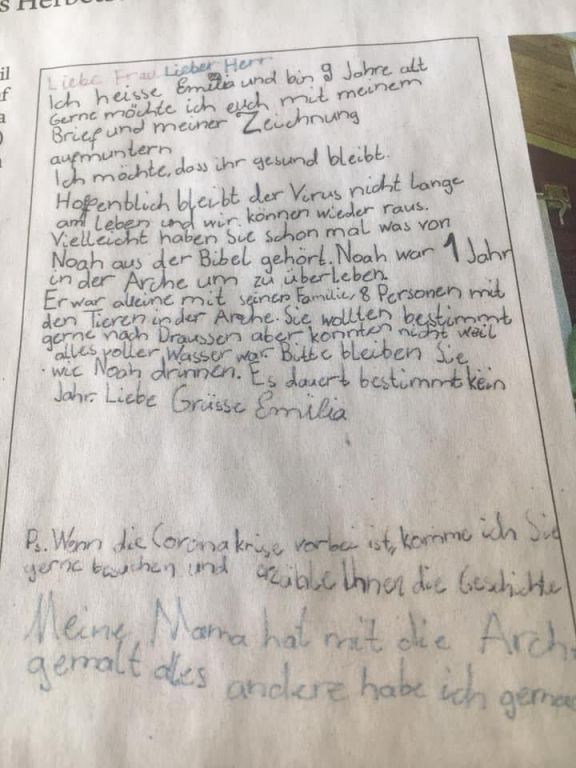 s Herbets
Liebe Frau Lieber Herr
Ich heisse Emilia und bin 9 Jahre alt
Gerne möchte ich euch mit meinem
Brief und meiner Zeichnung
aufmuntern
Ich möchte, dass ihr gesund bleibt.
Hoffentlich bleibt der Virus nicht lange
am Leben und wir können wieder raus.
Vielleicht haben Sie schon mal was von
Noah aus der Bibel gehört. Noah war 1 Jahr
in der Arche um zu überleben.
Er war alleine mit seiner Familie, 8 Personen mit
den Tieren in der Arche. Sie wollten bestimmt
gerne nach Draussen aber konnten nicht weil
alles voller Wasser war Bitte bleiben Sie
wie Noah drinnen. Es dauert bestimmt kein
Jahr. Liebe Grüsse Emilia
Ps. Wenn die Coronakrise vorbei ist, komme ich Sie
gerne besuchen und erzähle Ihnen die Geschichte
Meine Mama hat mit die Arch
gemalt alles andere habe ich gema